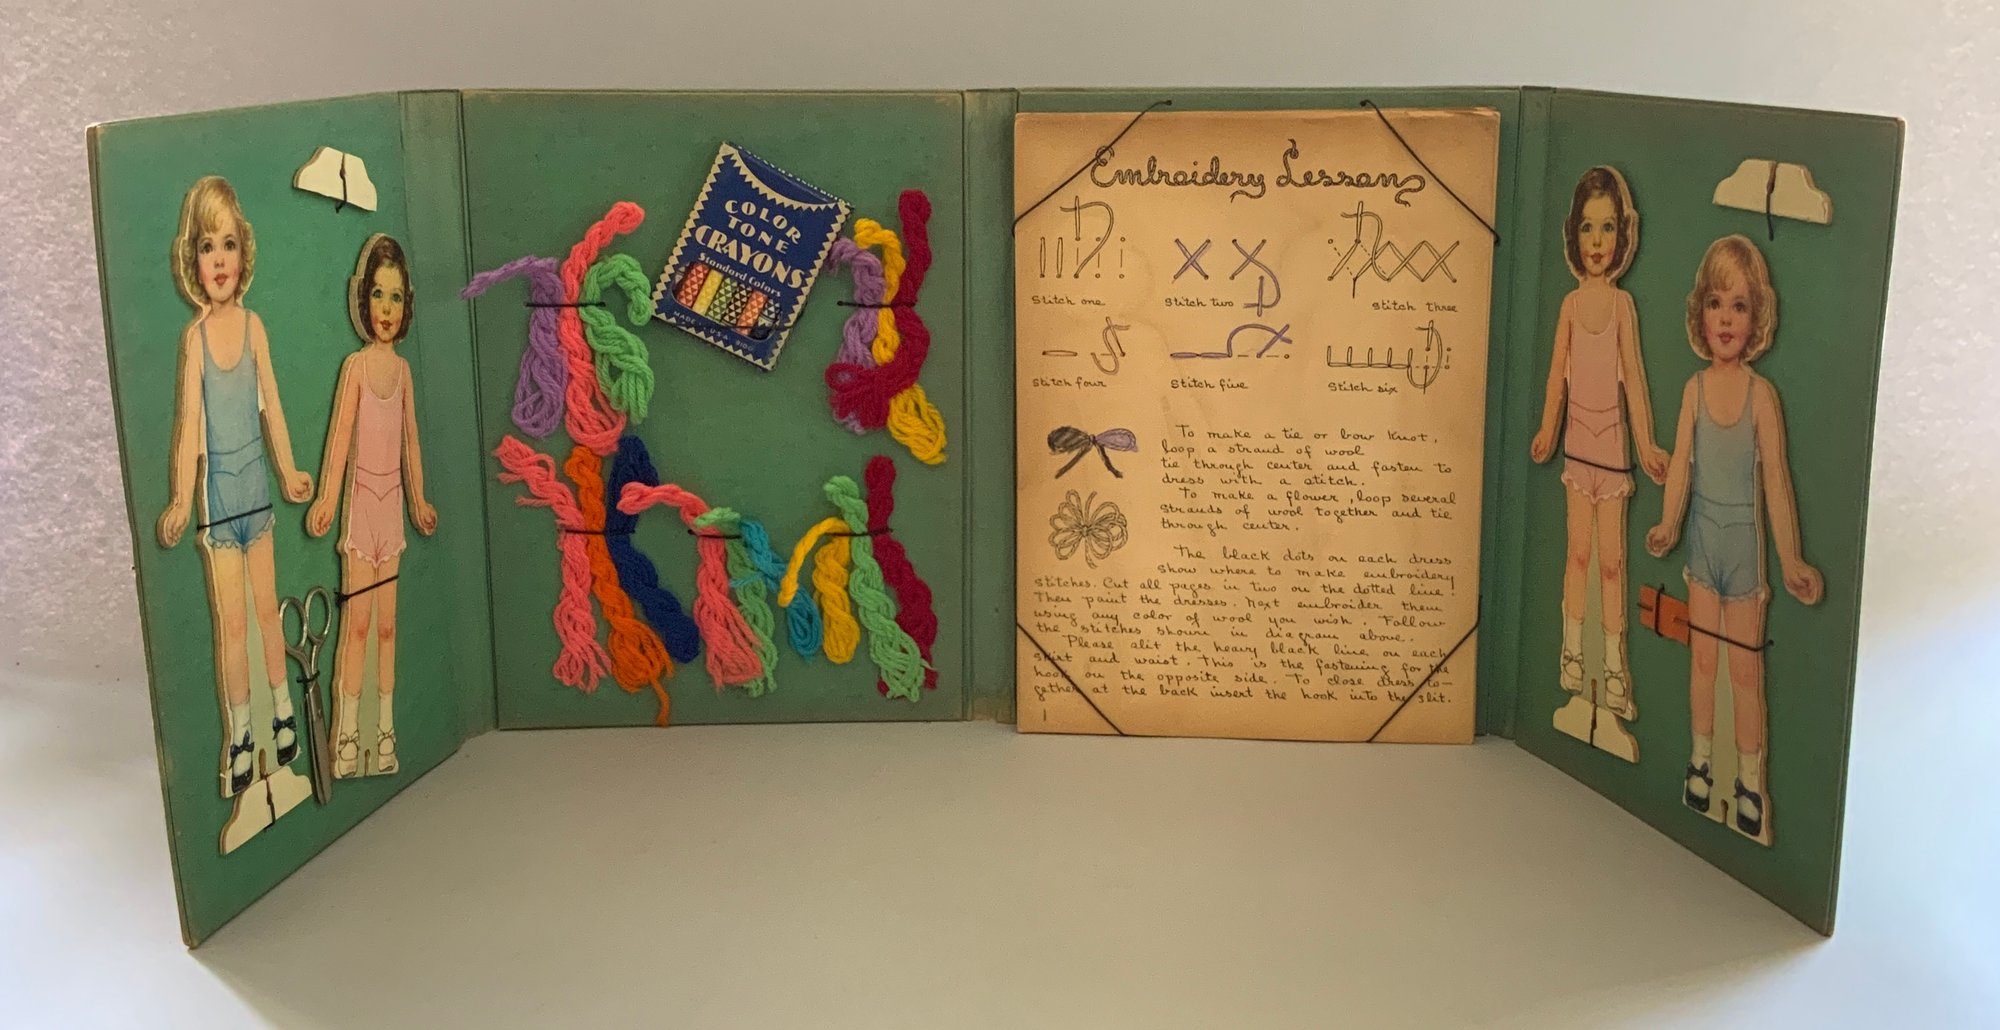 COLOR
TONE
CRAYONS
Standard Colors
MADE U.S.A.
Embroidery Lessons
Stitch one
Stitch two
Stitch three
Stitch four
Stitch five
Stitch six
To make a tie or bow knot,
loop a strand of wool
tie through center and fasten to
dress with a stitch.
To make a flower, loop several
strands of wool together and tie
through center.
The black dots on each dress
show where to make embroidery
stitches. Cut all pages in two on the dotted line.
Then paint the dresses. Next embroider them
using any color of wool you wish. Follow
the stitches shown in diagram above.
Please slit the heavy black line on each
skirt and waist. This is the fastening for the
hook on the opposite side. To close dress to-
gether at the back insert the hook into the slit.
1